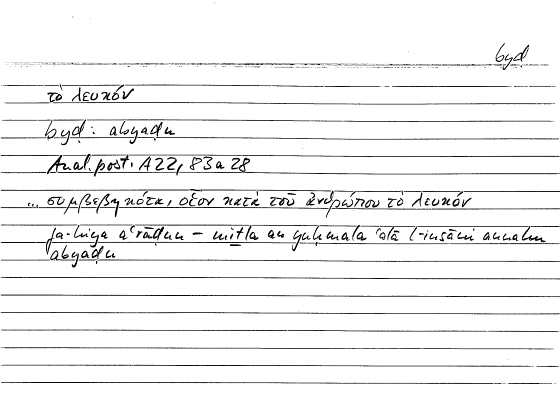 byḍ
τὸ λευκόν
byḍ: abyaḍu
Anal. post. A 22, 83 a 28
... συμβεβηκότα, οἷον κατὰ τοῦ ἀνθρώπου τὸ λευκόν
fa-hiya aʿrāḍun – miṯla an yuḥmala ʿalā l-insāni annahu
abyaḍu